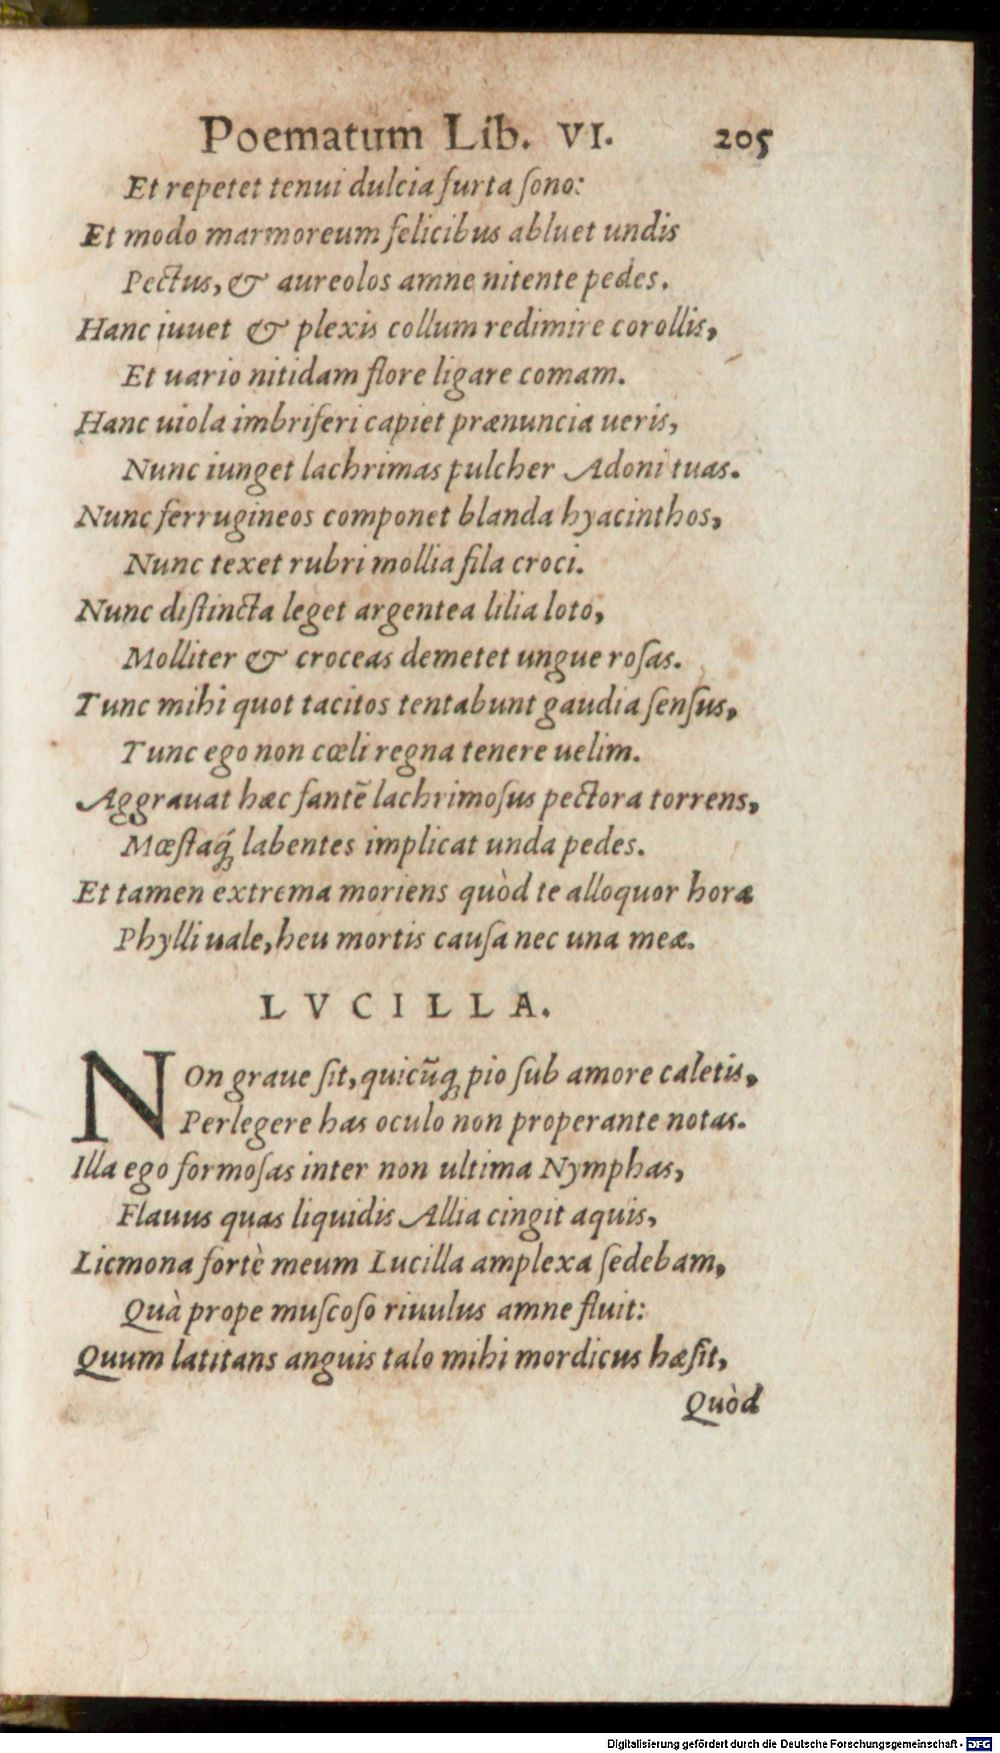 Poematum Lib. VI. 205
Et repetet tenui dulcia furta ſono:
Et modo marmoreum felicibus abluet undis
Pectus, & aureolos amne nitente pedes.
Hanc iuuet & plexis collum redimire corollis,
Et uario nitidam flore ligare comam.
Hanc uiola imbriferi capiet prænuncia ueris,
Nunc iunget lachrimas pulcher Adoni tuas.
Nunc ferrugineos componet blanda hyacinthos,
Nunc texet rubri mollia fila croci.
Nunc diſtincta leget argentea lilia loto,
Molliter & croceas demetet ungue roſas.
Tunc mihi quot tacitos tentabunt gaudia ſenſus,
Tunc ego non cœli regna tenere uelim.
Aggrauat hæc fantẽ lachrimoſus pectora torrens,
Mœſtaq́; labentes implicat unda pedes.
Et tamen extrema moriens quòd te alloquor hora
Phylli uale, heu mortis cauſa nec una meæ.
LVCILLA.
NOn graue ſit, quicũq; pio ſub amore caletis,
Perlegere has oculo non properante notas.
Illa ego formoſas inter non ultima Nymphas,
Flauus quas liquidis Allia cingit aquis,
Licmona fortè meum Lucilla amplexa ſedebam,
Quà prope muſcoſo riuulus amne fluit:
Quum latitans anguis talo mihi mordicus hæſit,
Quòd
Digitalisierung gefördert durch die Deutsche Forschungsgemeinschaft - DFG